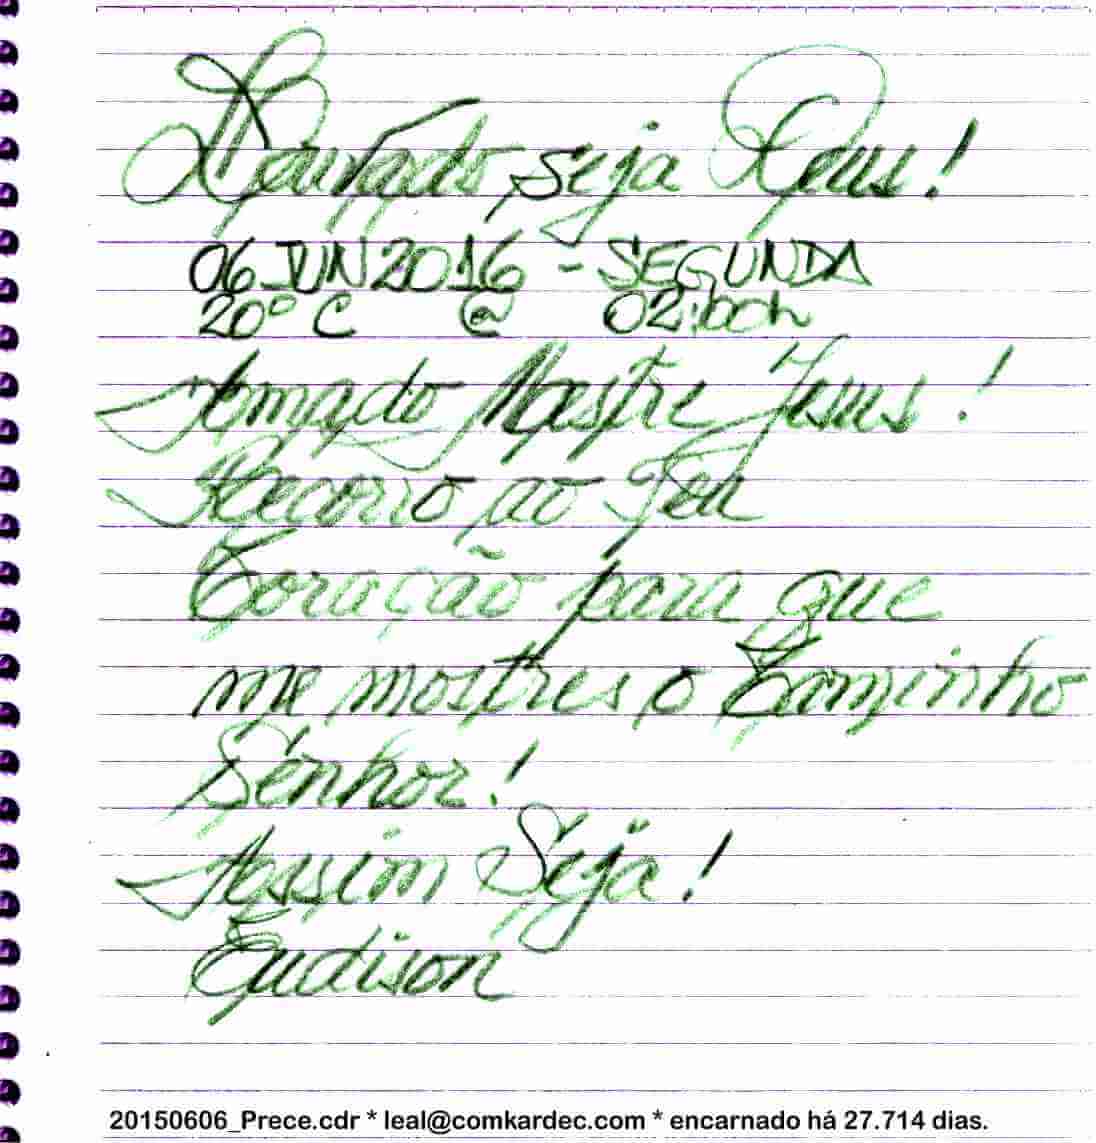 Louvado seja Deus!
06 JUN 2016 - SEGUNDA
20º C @ 02:00h
Amado Mestre Jesus!
Recorro ao Teu
Coração para que
me mostres o Caminho
Senhor!
Assim Seja!
Eudison
20150606_Prece.cdr * leal@comkardec.com * encarnado há 27.714 dias.